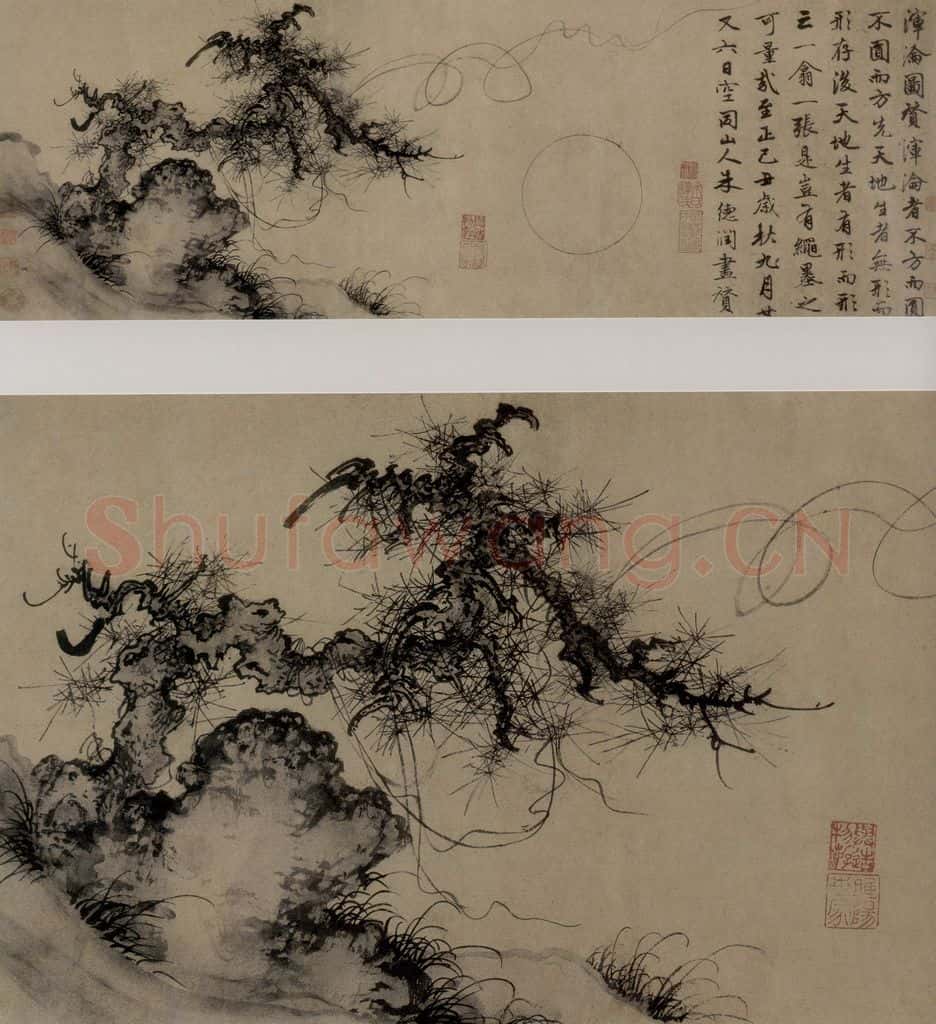 渾淪圖贊渾淪者不方而圓
不圓而方先天地生者無形而
形存後天地生者有形而形
亡一翕一張是豈有繩墨之
可量哉至正己丑歲秋九月廿
又六日空同山人朱德潤畫贊
Shufawang.CN